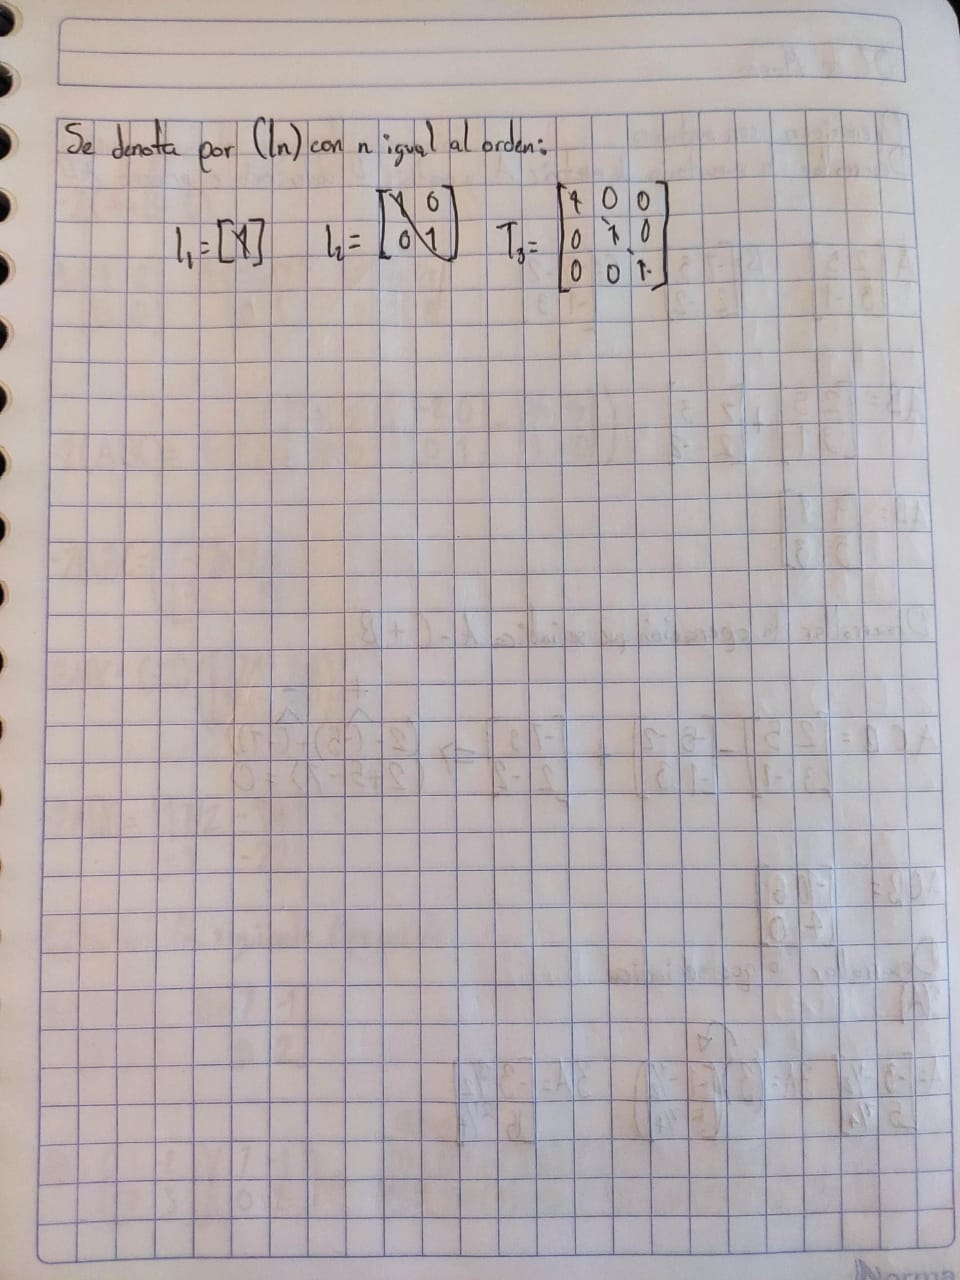 Se denota por (In) con n igual al orden:
I₁ = [1] I₂ = [1 0
0 1] I₃ = [1 0 0
0 1 0
0 0 1]
Norma